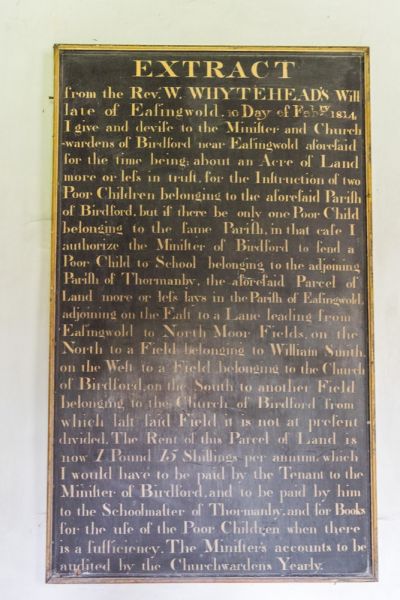 EXTRACT
from the Rev. W. WHYTEHEAD'S Will
late of Eaſingwold, 16 Day of Febry. 1814.
I give and deviſe to the Miniſter and Church
-wardens of Birdford near Eaſingwold aforeſaid
for the time being; about an Acre of Land
more or leſs in truſt, for the Inſtruction of two
Poor Children belonging to the aforeſaid Pariſh
of Birdford, but if there be only one Poor Child
belonging to the ſame Pariſh, in that caſe I
authorize the Miniſter of Birdford to ſend a
Poor Child to School belonging to the adjoining
Pariſh of Thormanby, the aforeſaid Parcel of
Land more or leſs lays in the Pariſh of Eaſingwold,
adjoining on the Eaſt to a Lane leading from
Eaſingwold to North Moor Fields, on the
North to a Field belonging to William Smith,
on the Weſt to a Field belonging to the Church
of Birdford, on the South to another Field
belonging to the Church of Birdford from
which laſt ſaid Field it is not at preſent
divided, The Rent of this Parcel of Land is
now 1 Pound 15 Shillings per annum, which
I would have to be paid by the Tenant to the
Miniſter of Birdford, and to be paid by him
to the Schoolmaſter of Thormanby, and for Books
for the uſe of the Poor Children when there
is a ſufficiency. The Miniſter's accounts to be
audited by the Churchwardens Yearly.